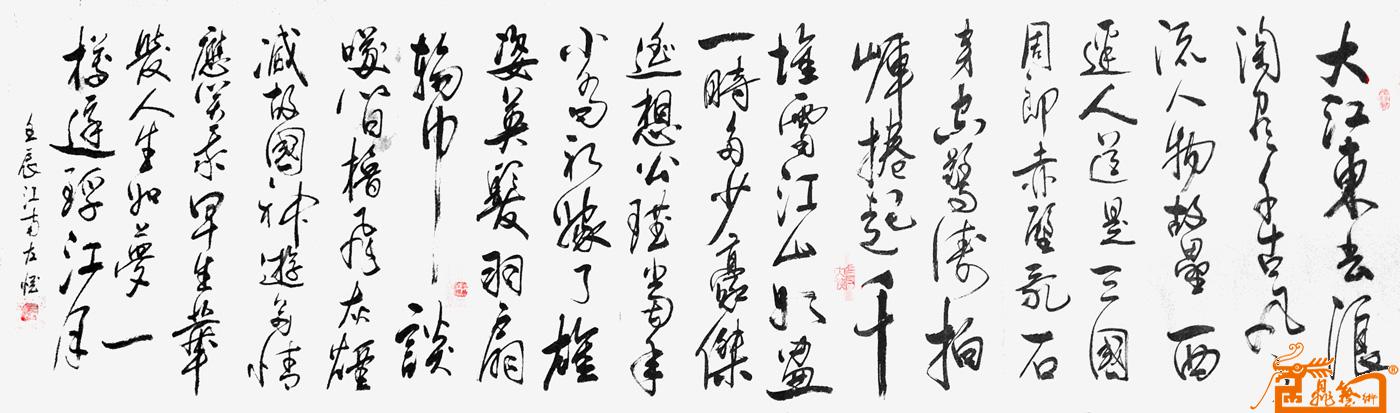 大江東去浪
淘盡千古風
流人物故壘西
邊人道是三國
周郎赤壁亂石
穿空驚濤拍
岸捲起千
堆雪江山如畫
一時多少豪傑
遙想公瑾當年
小喬初嫁了雄
姿英發羽扇
綸巾談
笑間櫓飛灰煙
滅故國神遊多情
應笑我早生華
髮人生如夢一
樽還酹江月
壬辰江南左